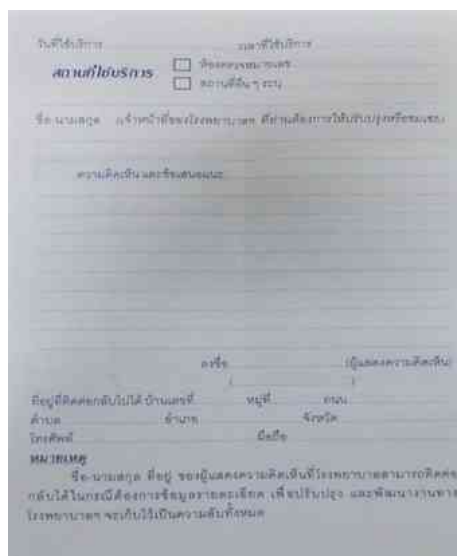 วันที่ใช้บริการ เวลาที่ใช้บริการ
สถานที่ใช้บริการ
ห้องตรวจหมายเลข
สถานที่อื่น ๆ ระบุ
ชื่อ-นามสกุล เจ้าหน้าที่ของโรงพยาบาลฯ ที่ท่านต้องการให้ปรับปรุงหรือชมเชย
ความคิดเห็น และข้อเสนอแนะ
ลงชื่อ (ผู้แสดงความคิดเห็น)
( )
ที่อยู่ที่ติดต่อกลับไปได้ บ้านเลขที่ หมู่ที่ ถนน
ตำบล อำเภอ จังหวัด
โทรศัพท์ มือถือ
หมายเหตุ
ชื่อ-นามสกุล ที่อยู่ ของผู้แสดงความคิดเห็นที่โรงพยาบาลสามารถติดต่อ
กลับได้ในกรณีต้องการข้อมูลรายละเอียด เพื่อปรับปรุง และพัฒนางานทาง
โรงพยาบาลฯ จะเก็บไว้เป็นความลับทั้งหมด